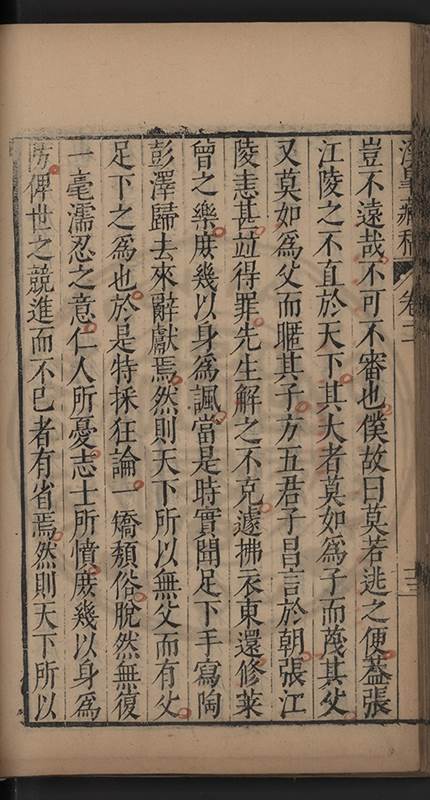 漢皐藏稿 卷二
豈不遠哉不可不審也僕故曰莫若逃之便蓋張
江陵之不直於天下其大者莫如為子而蔑其父
又莫如為父而暱其子方五君子昌言於朝張江
陵恚甚竝得罪先生解之不克遽拂衣東還修萊
曾之樂庻幾以身為諷當是時實聞足下手寫陶
彭澤歸去來辭獻焉然則天下所以無父而有父
足下之為也於是特採狂論一矯頽俗脫然無復
一毫濡忍之意仁人所憂志士所憤庻幾以身為
防俾世之競進而不已者有省焉然則天下所以